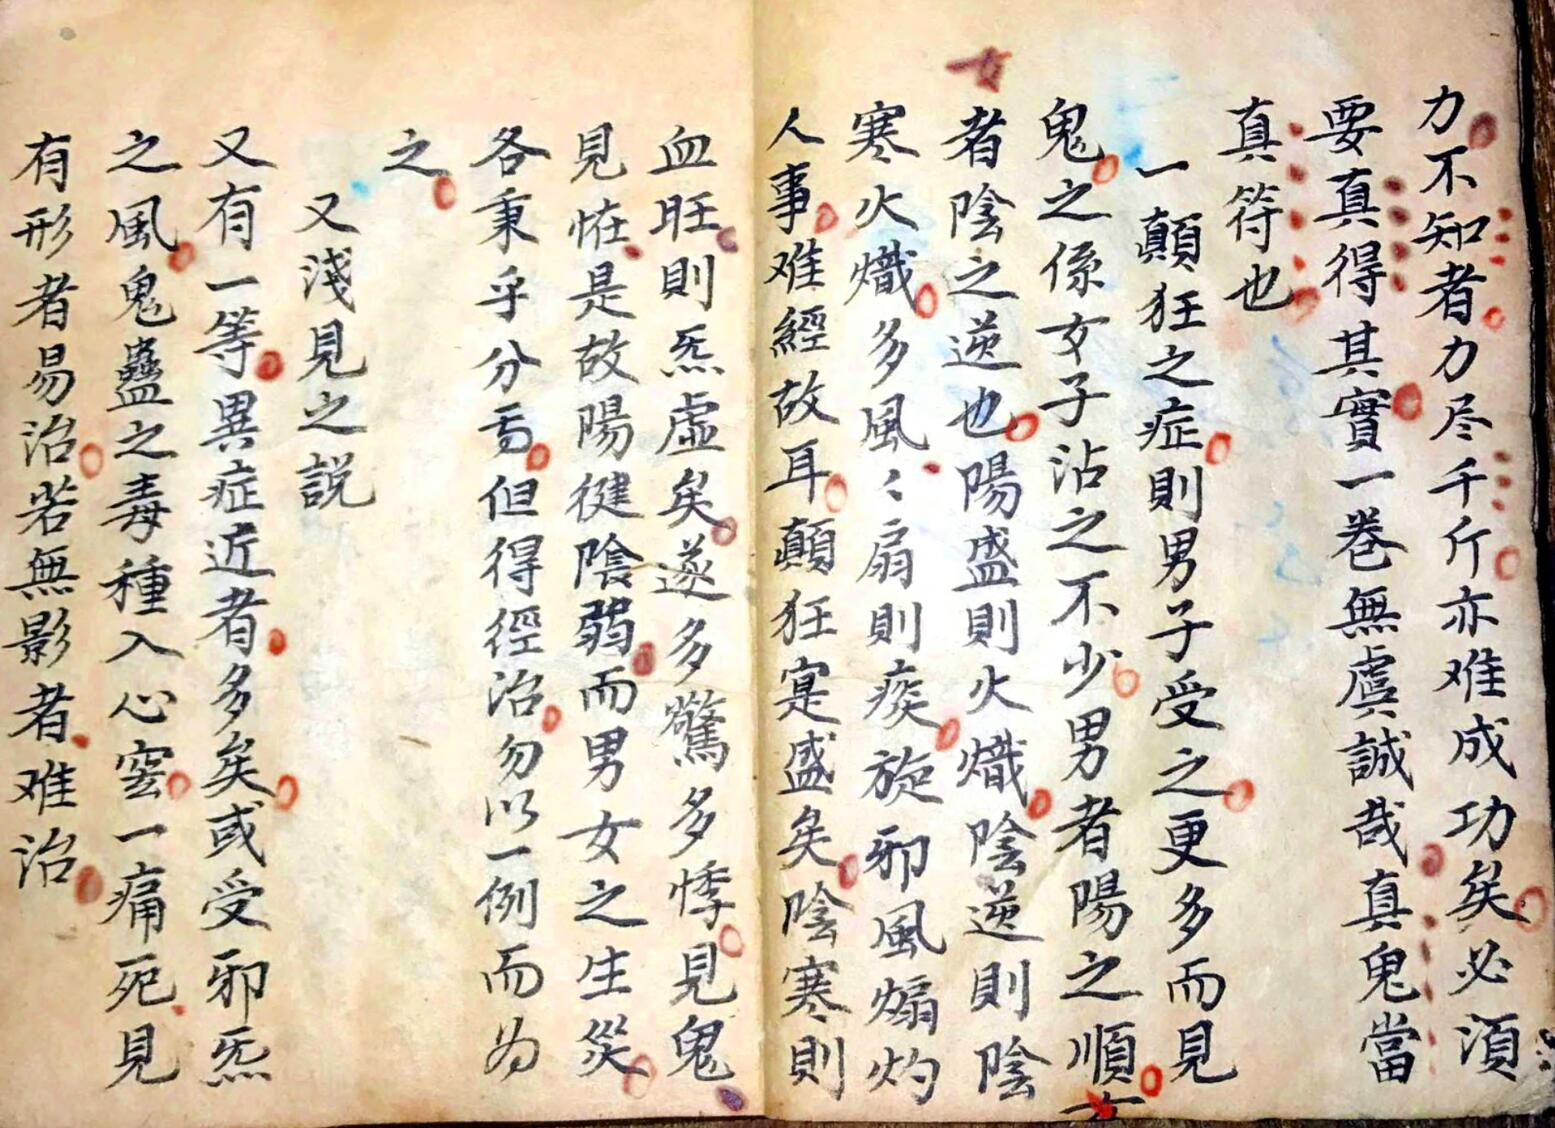 力不知者力尽千斤亦难成功矣必須
要真得其實一卷無虞誠哉真鬼當
真符也
一顛狂之症則男子受之更多而見
鬼之係女子沾之不少男者陽之順女
女
者陰之逆也陽盛則火熾陰逆則陰
寒火熾多風〻扇則痰旋邪風煽灼
人事难經故耳顛狂寔盛矣陰寒則
血旺則炁虛矣遂多驚多悸見鬼
見恠是故陽健陰弱而男女之生災
各秉乎分焉但得徑治勿以一例而為
之
又淺見之説
又有一等異症近者多多矣或受邪炁
之風鬼蠱之毒種入心窍一痛死見
有形者易治若無影者难治